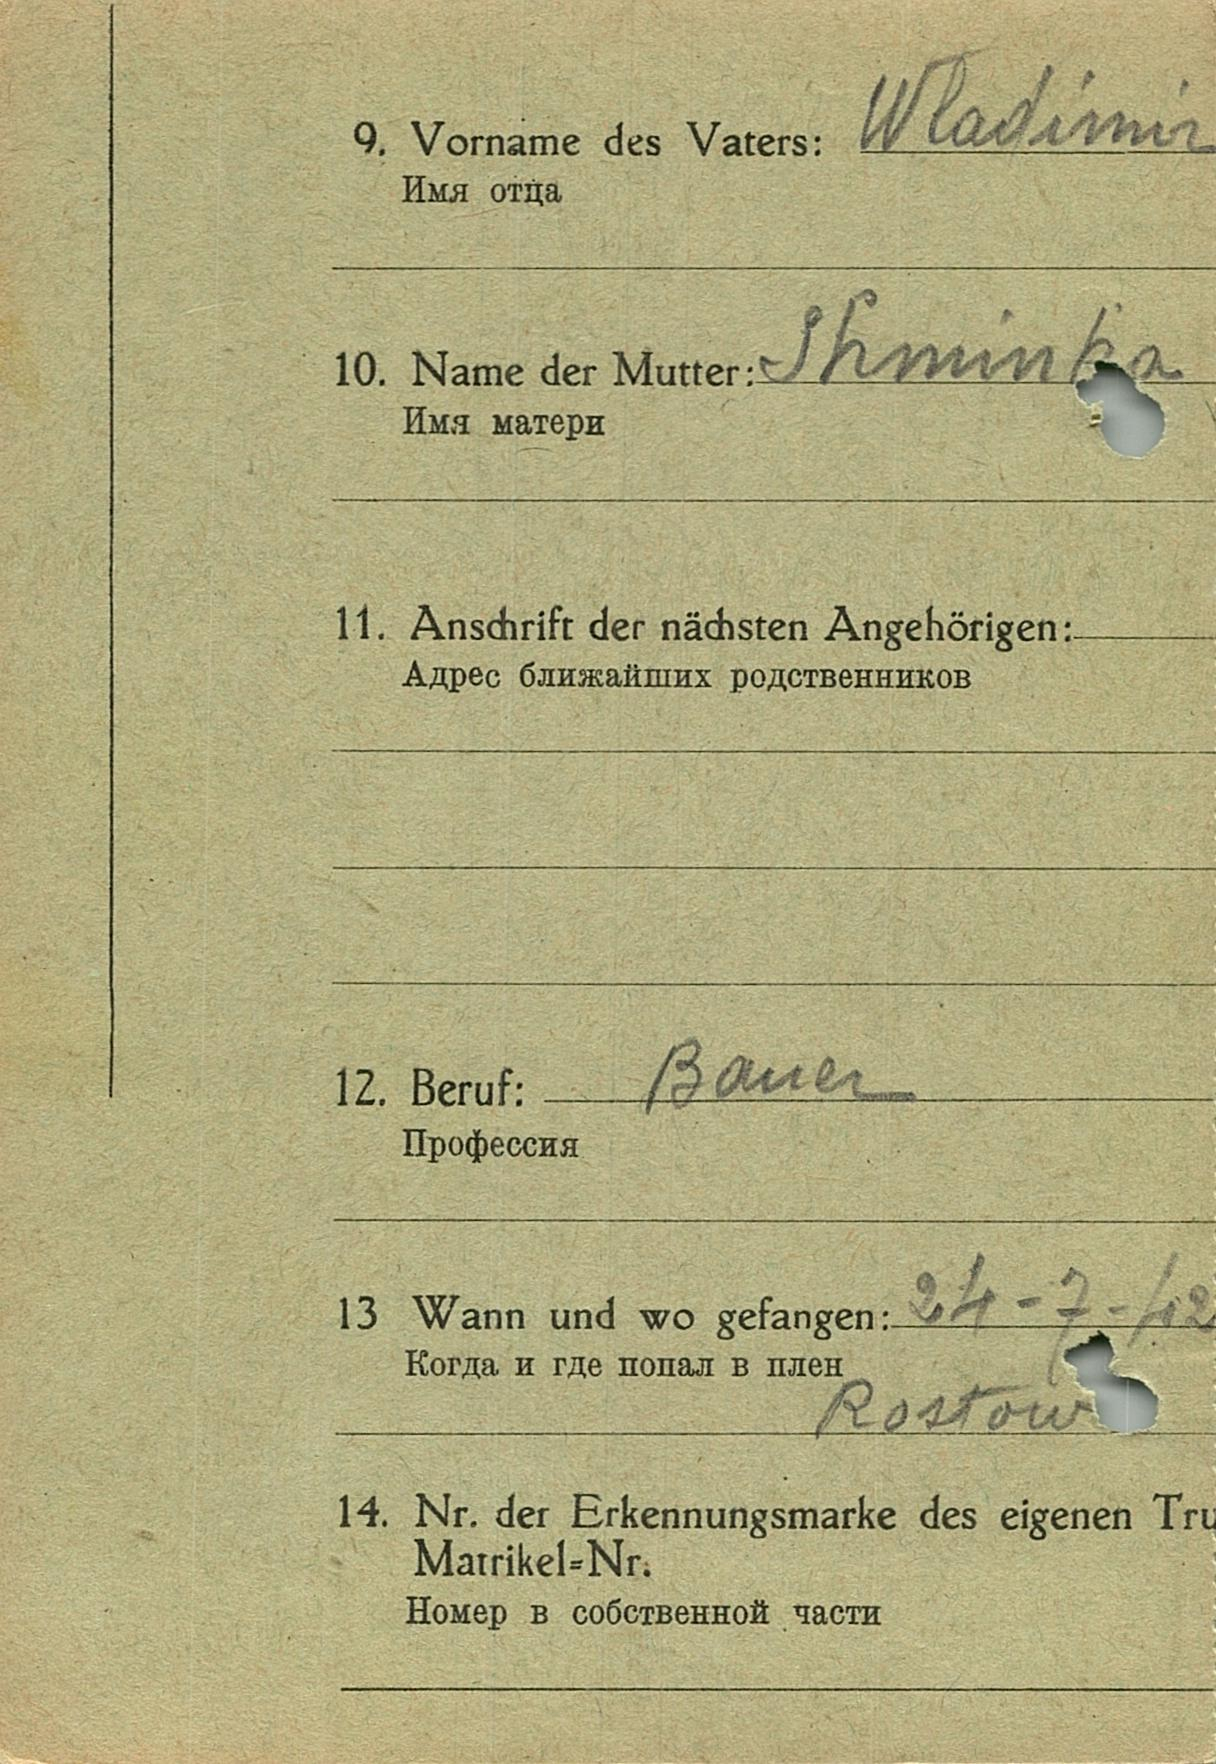 9. Vorname des Vaters: Wladimir
Имя отца
10. Name der Mutter: Shminka
Имя матери
11. Anschrift der nächsten Angehörigen:
Адрес ближайших родственников
12. Beruf: Bauer
Профессия
13 Wann und wo gefangen: 24-7-42
Когда и где попал в плен
Rostow
14. Nr. der Erkennungsmarke des eigenen Tru
Matrikel=Nr.
Номер в собственной части